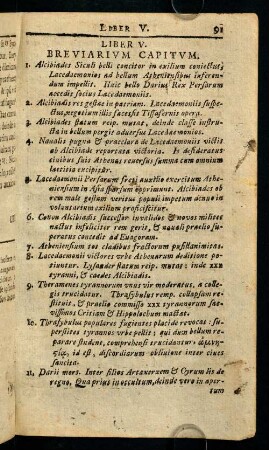 LIBER V. 91
LIBER V.
BREVIARIUM CAPITUM.
1. Alcibiades Siculi belli concitor in exilium coniectus,
Lacedaemonios ad bellum Atheniensibus inferendum
impellit. Huic bello Darius Rex Persarum
accedit socius Lacedaemoniis.
2. Alcibiadis res gestae in patriam. Lacedaemoniis suspectus,
negotium illis facessit Tissafernis opera.
3. Alcibiades statum reip. mutat, deinde classe instructa
in bellum pergit adversus Lacedaemonios.
4. Navalis pugna & praeclara de Lacedaemoniis victis
ab Alcibiade reportata victoria. Is desideratus
civibus suis Athenas reversus summa cum omnium
laetitia excipitur.
5. Lacedaemonii Persarum freti auxilio exercitum Atheniensium
in Asia sparsum opprimunt. Alcibiades ob
rem male gestam veritus populi impetum denuo in
voluntarium exilium proficiscitur.
6. Conon Alcibiadis successor invalidos & novos milites
nactus infeliciter rem gerit, & navali praelio superatus
concedit ad Evagoram.
7. Atheniensium tot cladibus fractorum pusillanimitas.
8. Lacedaemonii victores urbe Athenarum deditione potiuntur.
Lysander statum reip. mutat; inde xxx
tyranni, & caedes Alcibiadis.
9. Theramenes tyrannorum unus vir moderatus, a collegis
trucidatur. Thrasybulus remp. collapsam restituit,
& praelio commisso xxx tyrannorum saevissimos
Critiam & Hippolochum mactat.
10. Thrasybulus populares fugientes placide revocat: superstites
tyrannos urbe pellit; qui dum bellum reparare
student, comprehensi trucidantur: ἀμνηστίᾳ,
id est, discordiarum oblivione inter cives
sancita.
11. Darii mors. Inter filios Artaxerxem & Cyrum lis de
regno. Qua prius in occultum, deinde vero in apertum